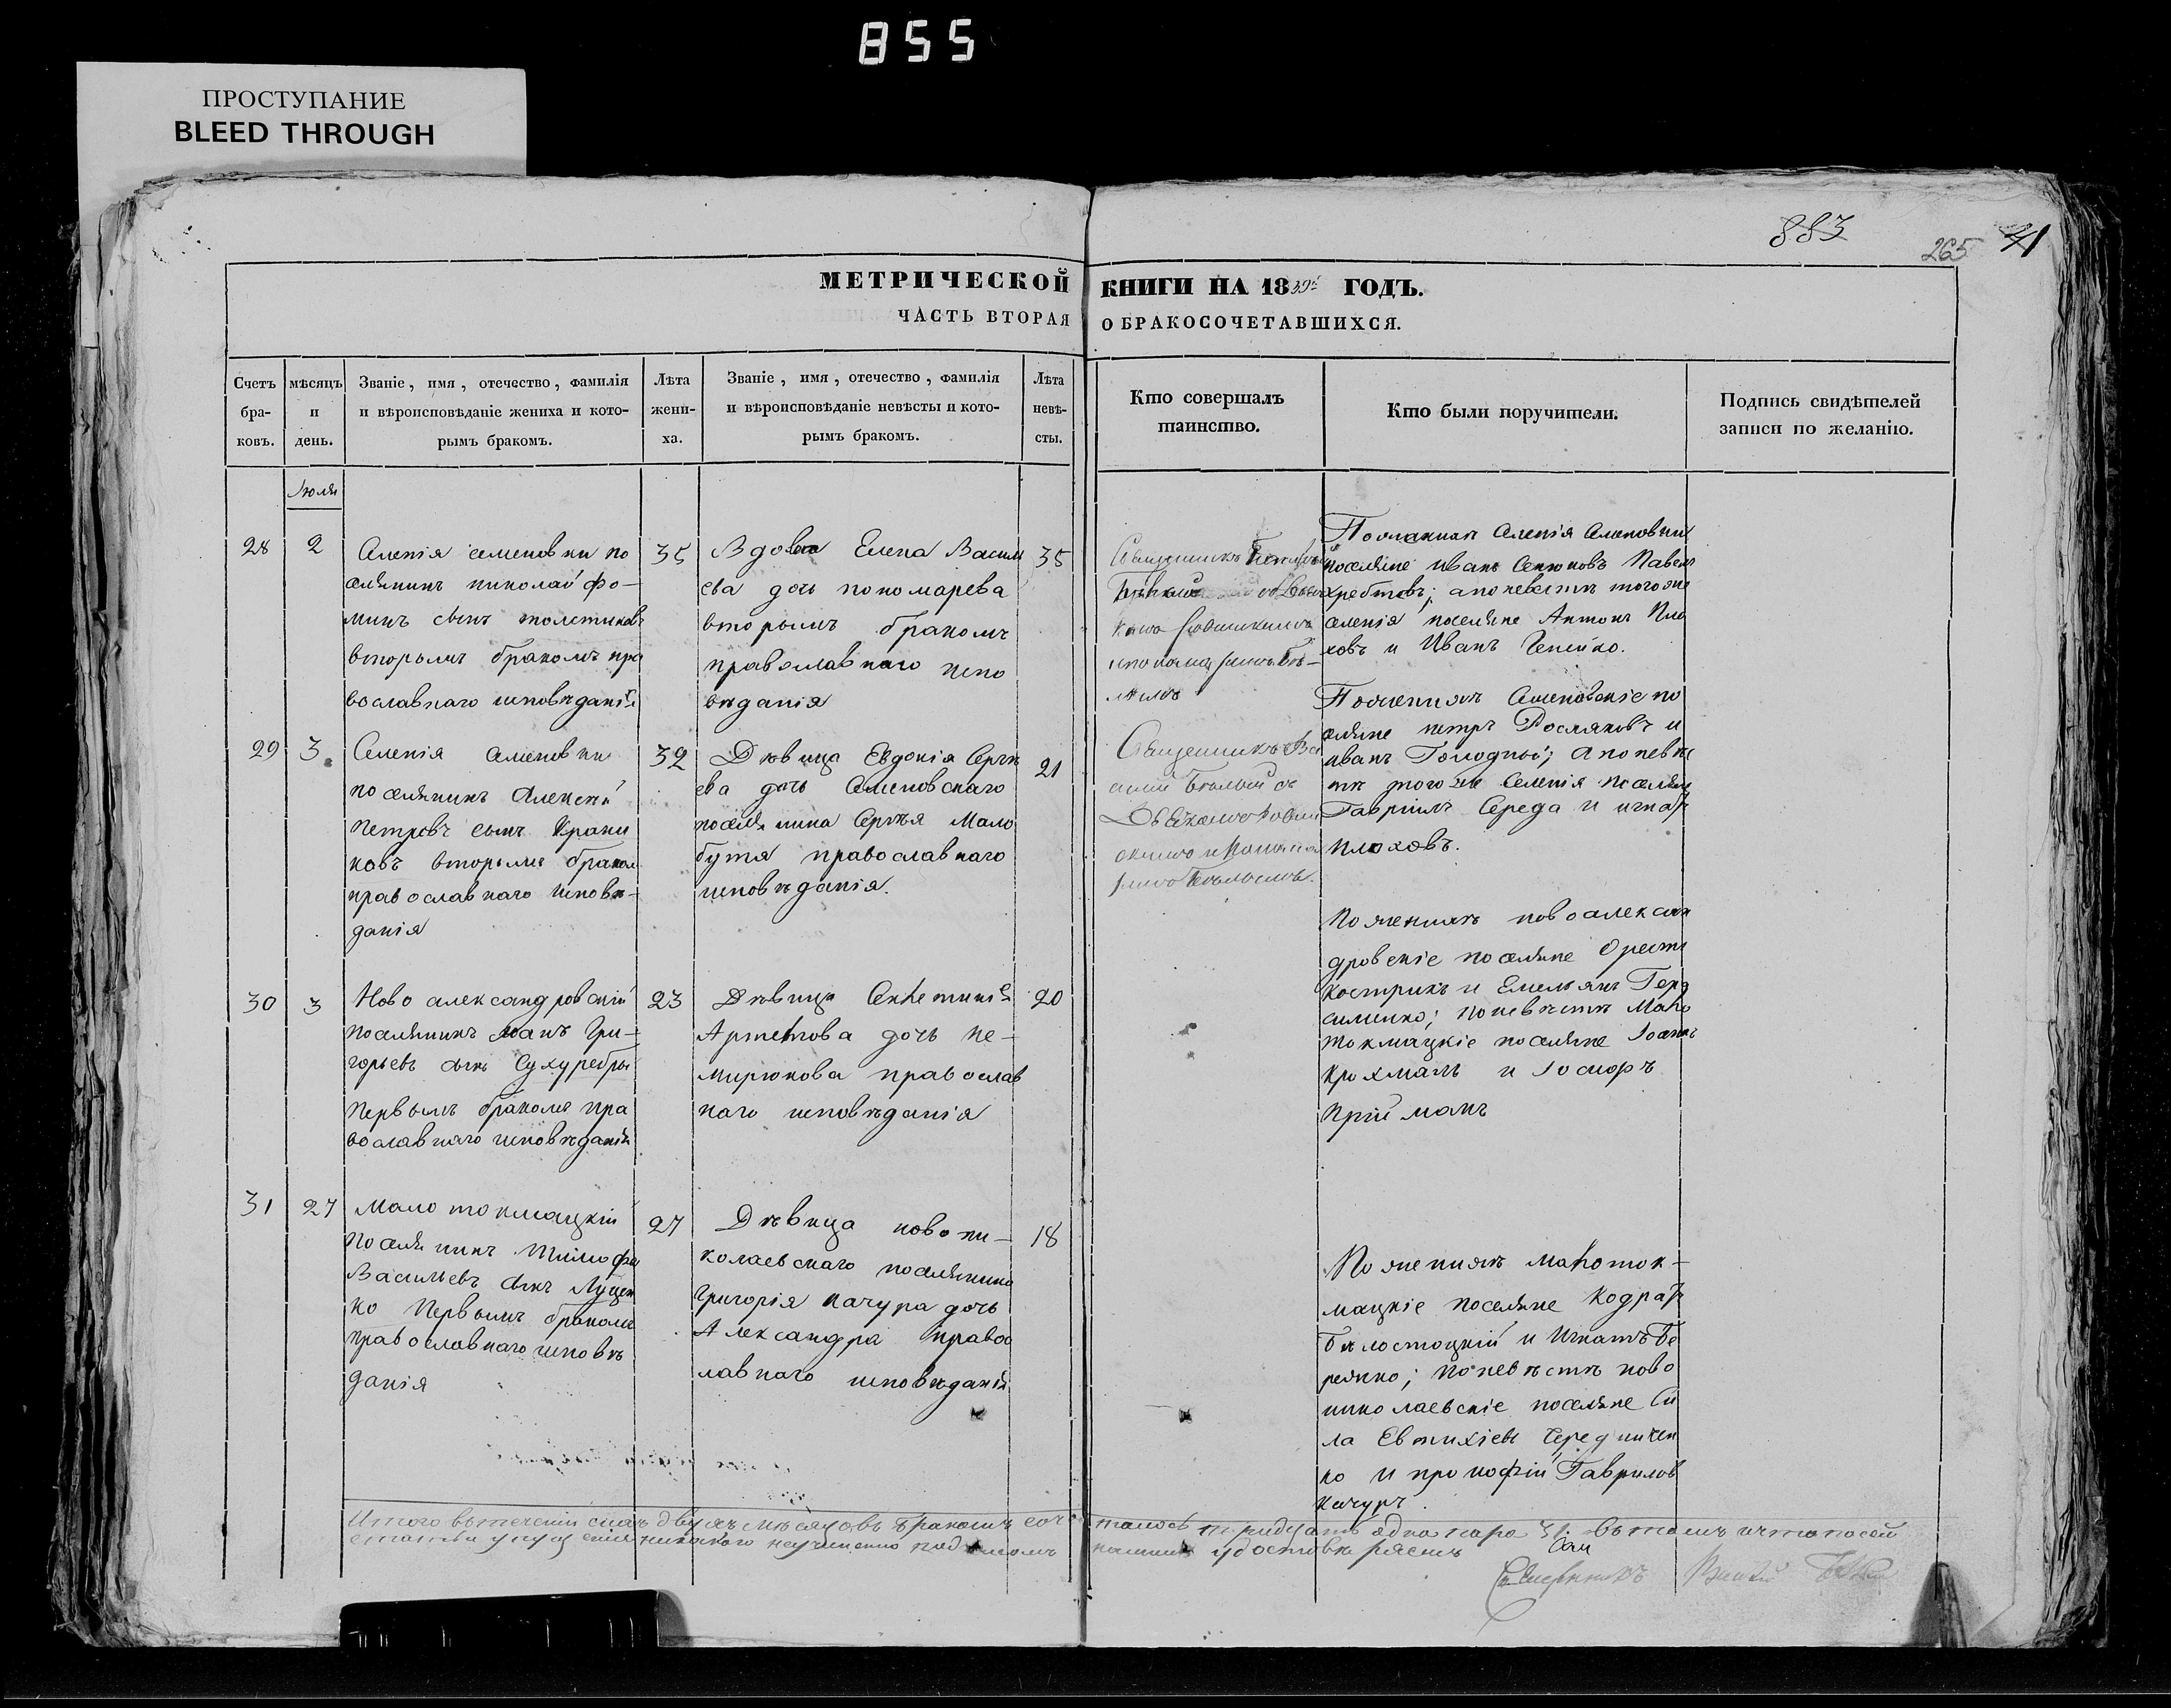 855
ПРОСТУПАНИЕ
BLEED THROUGH
883
265
41
МЕТРИЧЕСКОЙ КНИГИ НА 1839й ГОДЪ.
ЧАСТЬ ВТОРАЯ О БРАКОСОЧЕТАВШИХСЯ.
Счетъ
бра-
ковъ.
мѣсяцъ
и
день.
Званіе, имя, отечество, фамилія
и вѣроисповѣданіе жениха и кото-
рымъ бракомъ.
Лѣта
жени-
ха.
Званіе, имя, отечество, фамилія
и вѣроисповѣданіе невѣсты и кото-
рымъ бракомъ.
Лѣта
невѣ-
сты.
Кто совершалъ
таинство.
Кто были поручители.
Подпись свидѣтелей
записи по желанію.
Іюля
28
2
Селенія семеновки по
селянинъ николай фо-
минъ сынъ толстиковъ
вторымъ бракомъ пра
вославнаго исповѣданія
35
Вдова Елена Васил
ева дочь пономарева
вторымъ бракомъ
православнаго испо
вѣданія
35
Священникъ
Поженихѣ Селенія Семеновки
поселяне иванъ Сенюковъ Павелъ
хребтовъ; а по невѣстѣ того же
селенія поселяне Антонъ Пло
ховъ и Иванъ Чепейко.
29
3
Селенія семеновки
поселянинъ Алексей
Петровъ сынъ Крани
ковъ вторымъ браком
православнаго исповѣ-
данія
32
Дѣвица Евдокія Сергѣ
ева дочь Семеновскаго
поселянина Сергѣя Мало
бутя православнаго
исповѣданія.
21
Священникъ Ва
силій Бѣлый съ
Поженихѣ Семеновскіе по
селяне петръ Росляковъ и
иванъ Голодный; а по невѣс
тѣ того же Селенія поселяне
Гавріилъ Середа и игнат
плоховъ.
30
3
Ново александровскій
поселянинъ іоанъ Гри-
горьевъ сынъ Сухуребры
первымъ бракомъ пра
вославнаго исповѣданія
23
Дѣвица
Артемова дочь не-
мирюкова православ
наго исповѣданія
20
По женихѣ новоалексан
дровскіе поселяне Орестъ
Кострикъ и Емельянъ Гера
сименко; по невѣстѣ Мало
токмацкіе поселяне Іоаннъ
Крохмаль и Іосифъ
Прійманъ
31
27
Мало токмацкій
поселянинъ Тимофей
Васильевъ сынъ Луцен
ко Первымъ бракомъ
православнаго исповѣ
данія
27
Дѣвица ново ни-
колаевскаго поселянина
Григорія Качура дочь
Александра правос
лавнаго исповѣданія
18
По женихѣ малоток-
мацкіе поселяне Кодрат
Бѣлостоцкій и Игнатъ Бе
режко; по невѣстѣ ново
николаевскіе поселяне Си
ла Евтихіевъ Череднichен
ко и прокофій Гаврилов
Качуръ.
Итого въ теченіи сихъ двухъ мѣсяцовъ бракомъ сочеталось тридцать одна пара 31. въ томъ и что по сей
статьи упущенія никакого неучинено подписомъ нашимъ удостовѣряемъ
Священникъ